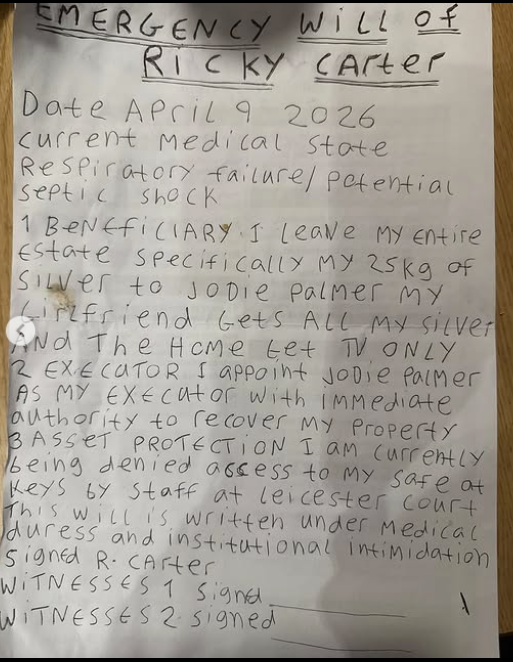 EMERGENCY WILL OF
RICKY CARTER
Date APRIL 9 2026
current medical state
Respiratory failure/potential
septic shock
1 BENEFICIARY. I leave my entire
Estate specifically my 25kg of
SILVER to JODIE Palmer my
Girlfriend Gets All my silver
AND The HOME Let TV ONLY
2 EXECATOR I appoint JoDie PalmeR
AS my EXECator with immediate
authority to recover my property
3 ASSET PROTECTION I am currently
being denied access to my safe at
Keys by staff at leicester court
This will is written under medical
duress and institutional intimidation
Signed R. CArter
WITNESSES 1 signed
WITNESSES 2. signed